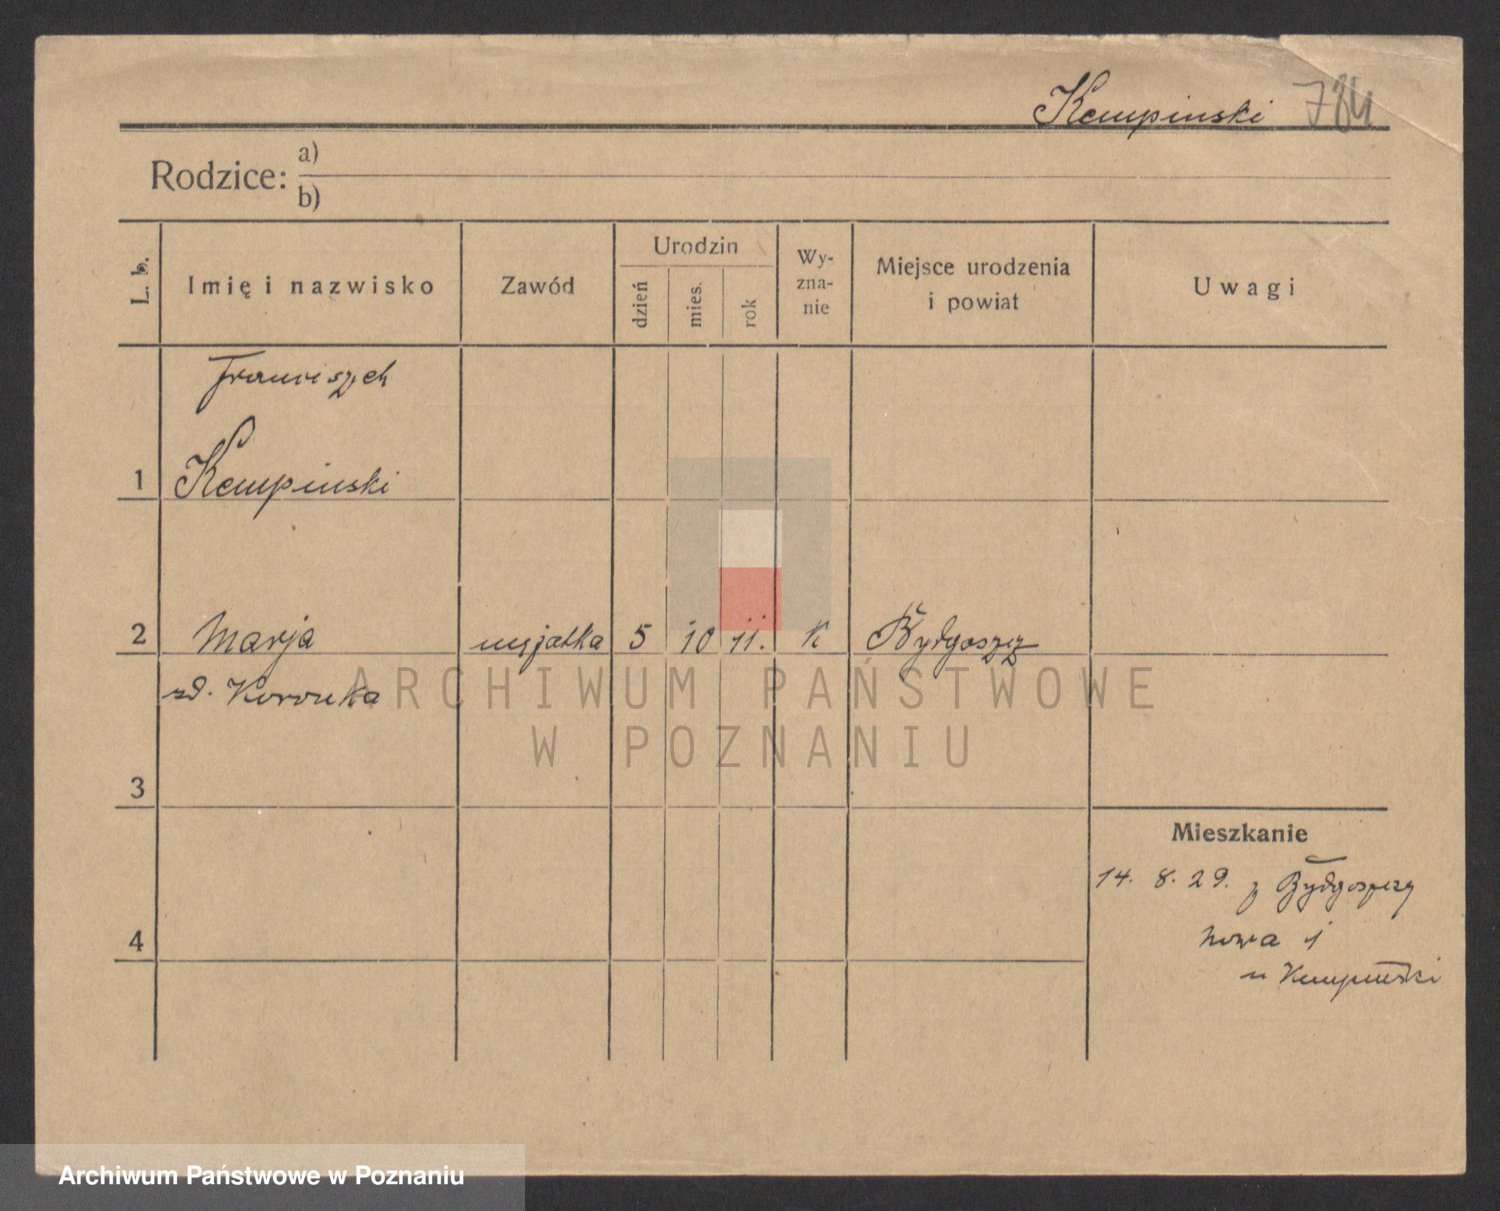 Kempinski 784
Rodzice: a)
b)
L. b.
Imię i nazwisko
Zawód
Urodzin
dzień
mies.
rok
Wy-
zna-
nie
Miejsce urodzenia
i powiat
Uwagi
Franciszek
1 Kempinski
2 Marja 5 10 11. K Bydgoszcz
zd.
3
4
Mieszkanie
14. 8. 29. z Bydgoszczy
Nowa 1
u Kempinski
ARCHIWUM PAŃSTWOWE
W POZNANIU
Archiwum Państwowe w Poznaniu